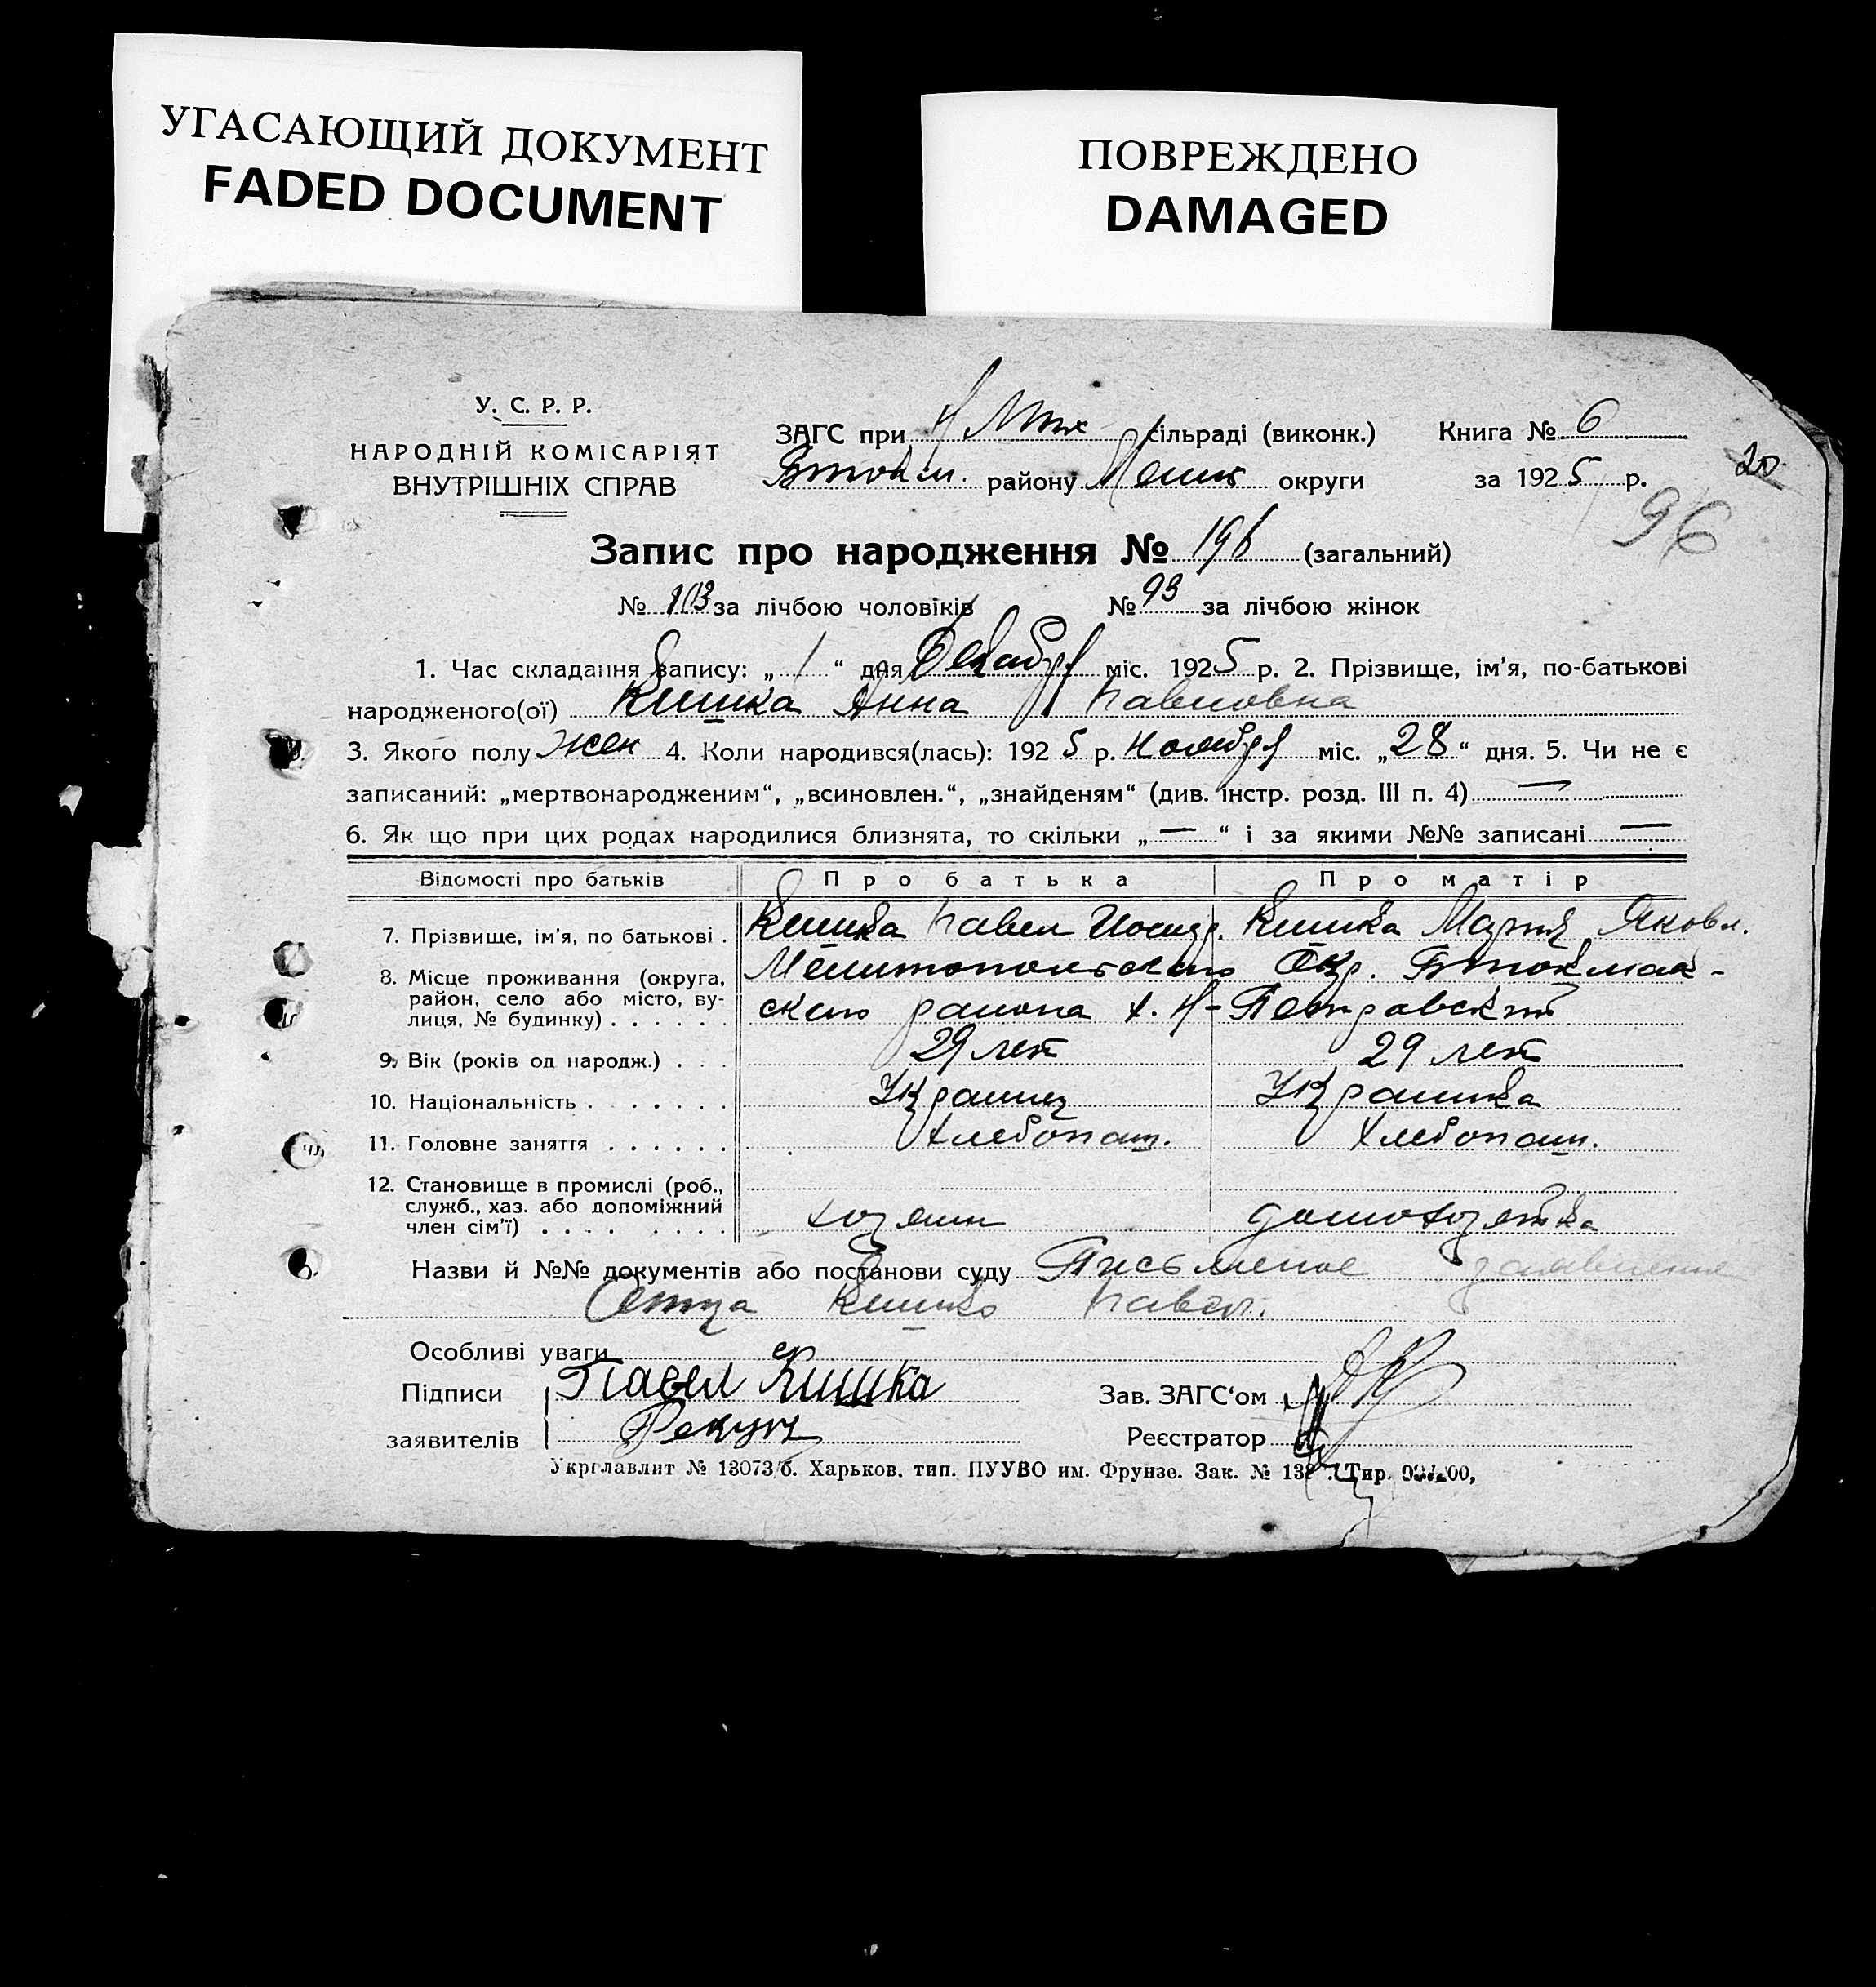 УГАСАЮЩИЙ ДОКУМЕНТ
FADED DOCUMENT
ПОВРЕЖДЕНО
DAMAGED
У. С. Р. Р.
НАРОДНІЙ КОМІСАРІЯТ
ВНУТРІШНІХ СПРАВ
ЗАГС при сільраді (виконк.)
Бтокм. району Мелит округи
Книга № 6
за 1925 р.
20
96
Запис про народження № 196 (загальний)
№ 103 за лічбою чоловіків № 93 за лічбою жінок
1. Час складання запису: „ 1 “ дня Декабря міс. 1925 р. 2. Прізвище, ім'я, по-батькові
народженого(ої) Кишка Анна Павловна
3. Якого полу жен 4. Коли народився(лась): 1925 р. Ноября міс. „28“ дня. 5. Чи не є
записаний: „мертвонародженим“, „всиновлен.“, „знайденям“ (див. інстр. розд. III п. 4) —
6. Як що при цих родах народилися близнята, то скільки „ — “ і за якими №№ записані —
Відомості про батьків Про батька Про матір
7. Прізвище, ім'я, по батькові . Кишка Павел Иосиф. Кишка Мария Яковл.
8. Місце проживання (округа, район, село або місто, вулиця, № будинку) . . . . . . Мелитопольского Окр. Бтокмак-
ского района х. Н-Петровский
9. Вік (років од народж.) . . . 29 лет 29 лет
10. Національність . . . . . . . Украинец Украинка
11. Головне заняття . . . . . . Хлебопаш. Хлебопаш.
12. Становище в промислі (роб., служб., хаз. або допоміжний член сім'ї) . . . . . . . . хозяин домохозяйка
Назви й №№ документів або постанови суду Письменое заявление
Отца Кишко Павел.
Особливі уваги
Підписи Павел Кишка
заявителів
Зав. ЗАГС‘ом
Реєстратор
Укрглавлит № 13073/б. Харьков. тип. ПУУВО им. Фрунзе. Зак. № Тир.